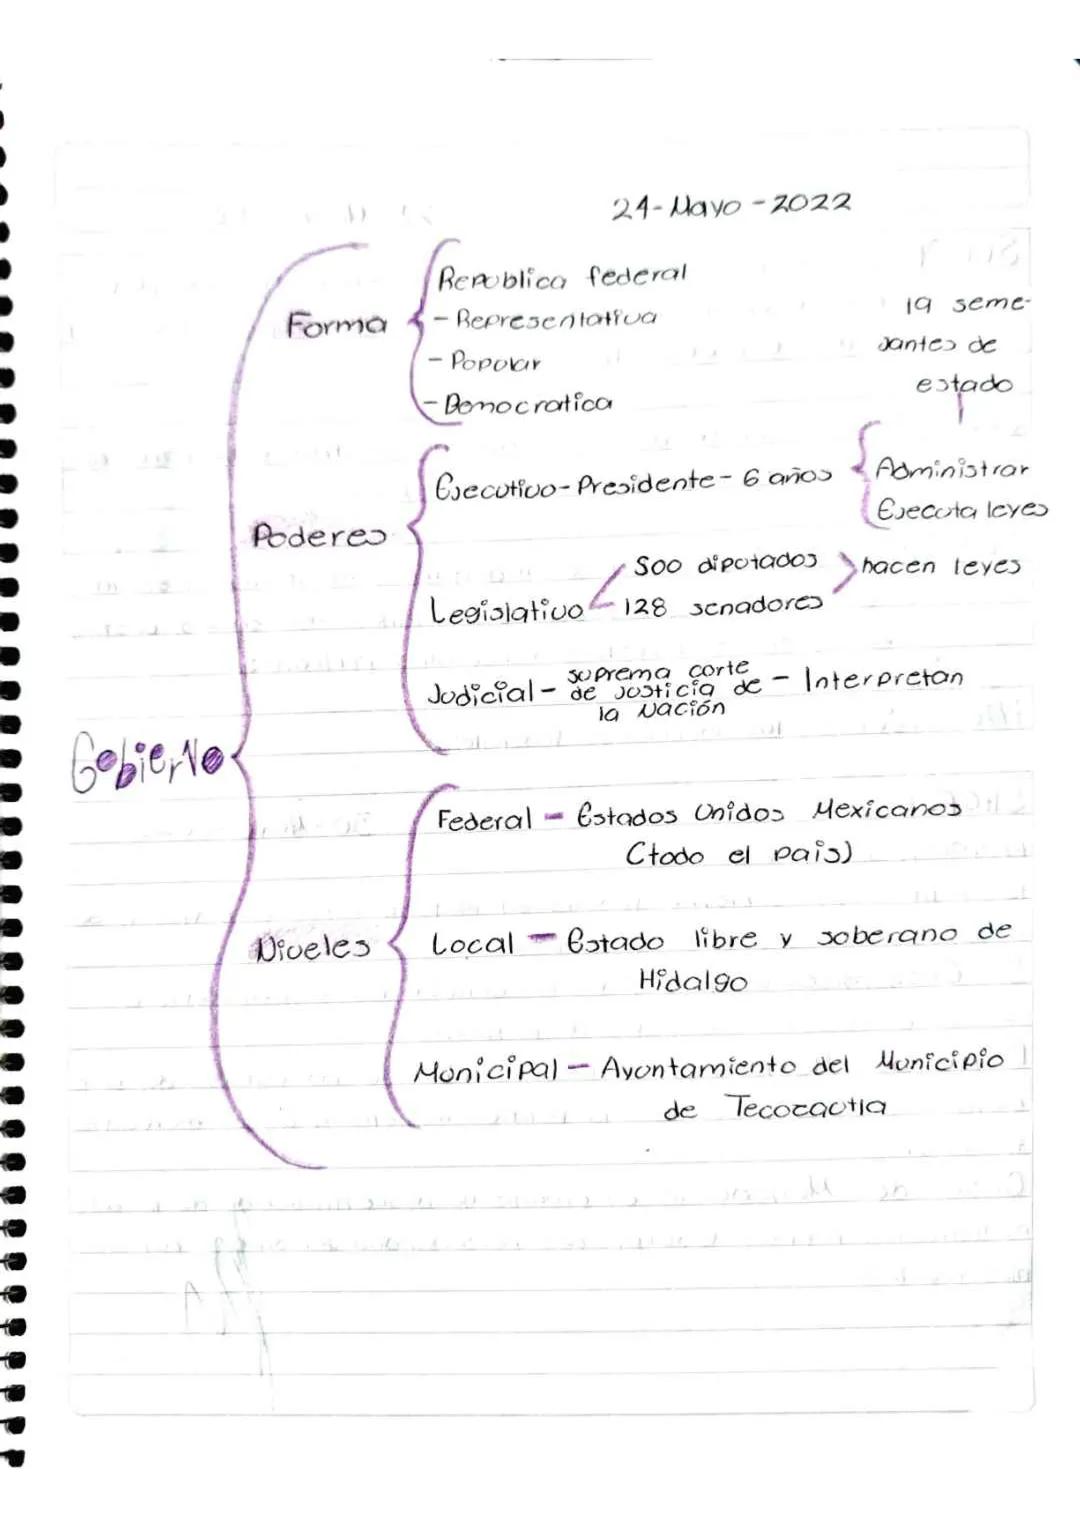 24-Mayo-2022
Gobierno
Forma
Republica federal
- Representativa
- Popular
- Democratica
19 seme-
jantes de
estado
Poderes
Ejecutivo-Presidente-6 años
Administrar
Ejecuta leyes
Legislativo
500 diputados
128 senadores
hacen leyes
Judicial - suprema corte
de justicia de
la Nación
- Interpretan
Niveles
Federal - Estados Unidos Mexicanos
(todo el pais)
Local - Estado libre y soberano de
Hidalgo
Municipal - Ayuntamiento del Municipio
de Tecozautla